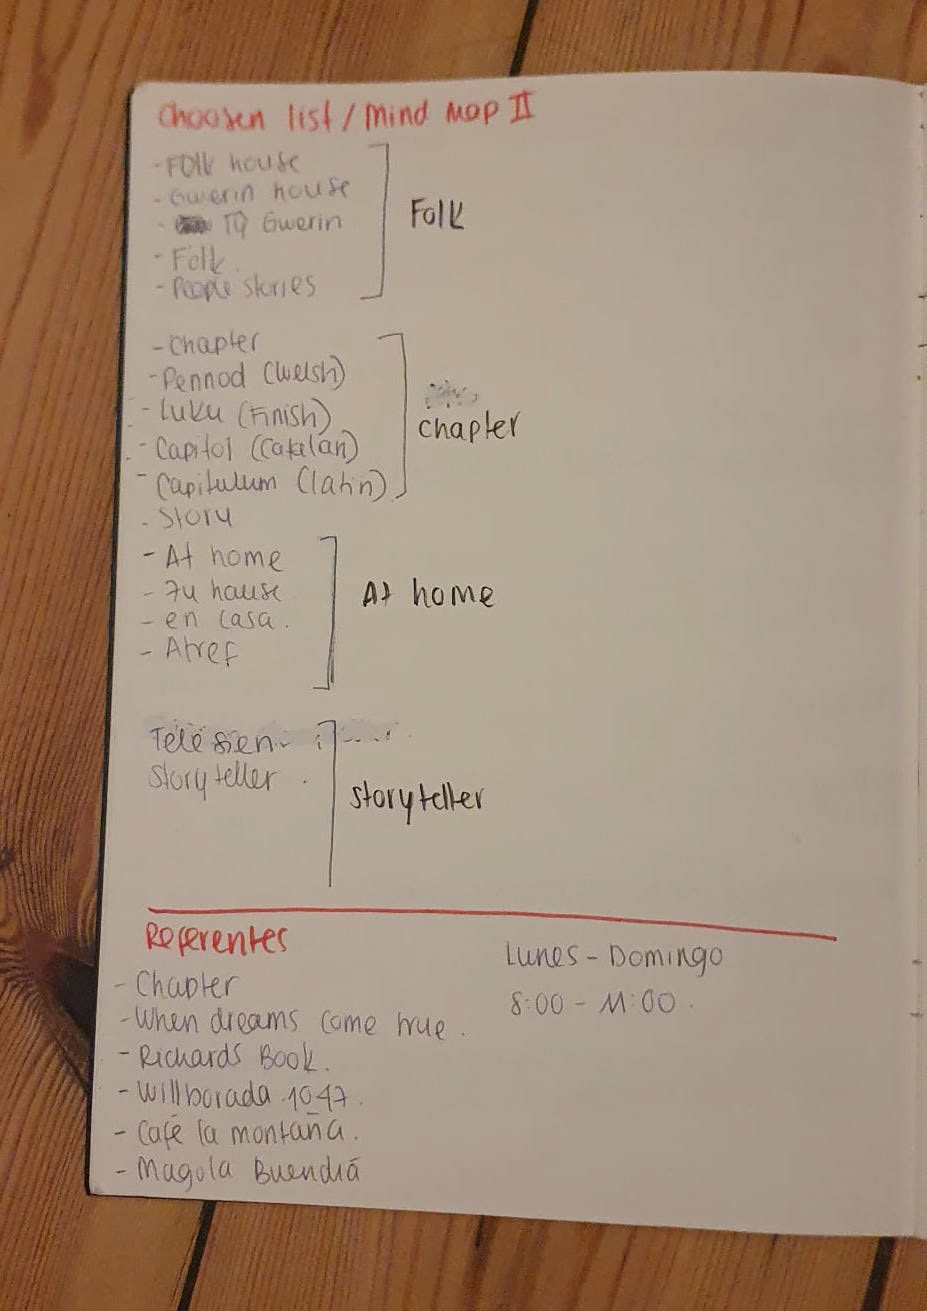 Choosen list / Mind Map II
- Folk house
- Gwerin house
- TQ Gwerin
- Folk.
- People stories
Folk
- Chapter
- Pennod (Welsh)
- Luku (Finish)
- Capitol (Catelan)
- Capitulum (latin)
chapter
- Story
- At home
- Zu hause
- en casa.
- Atref
At home
Storyteller.
storyteller
Referentes
- Chapter
- When dreams come true.
- Richards Book.
- Willborada 1047.
- Café la montaña.
- Magola Buendiá
Lunes - Domingo
8:00 - 11:00.